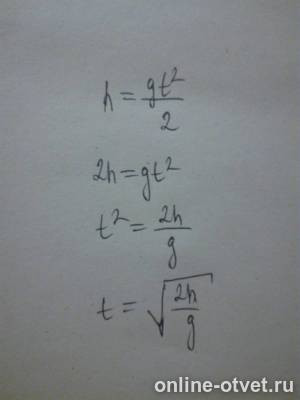 h = gt²/2
2h = gt²
t² = 2h/g
t = √(2h/g)
online-otvet.ru